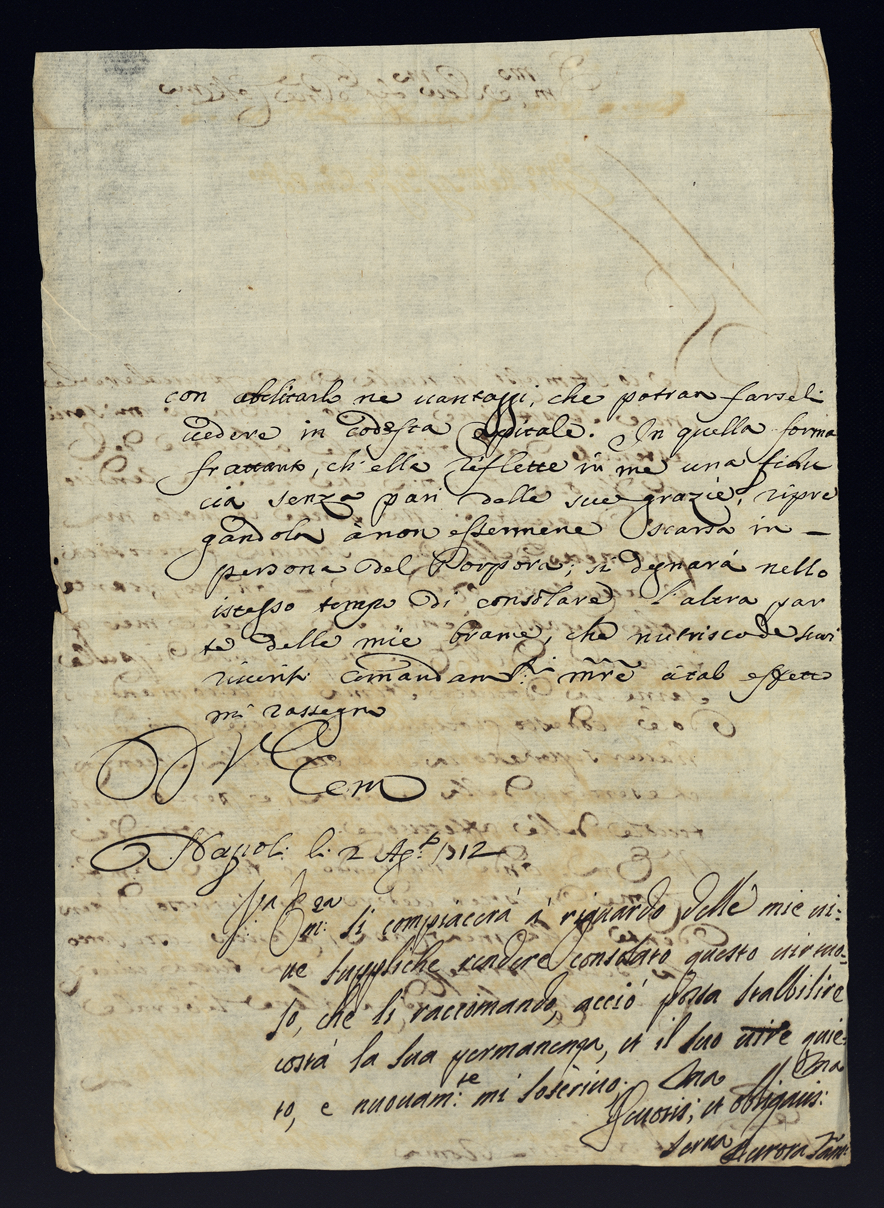 con abilitarlo ne uantaggi, che potran farseli
cedere in codesta Capitale. In quella forma
frattanto, ch'ella riflette in me una fidu
cia senza pari delle sue grazie, ripre
gandola à non essermene scarsa in –
persona del Porpora; si degnará nello
istesso tempo di consolare l'altra par
te delle mie brame, che nutrisco de suoi
riueriti comandam.ti mñre à tal effetto
mi rassegno
D V Ecem
Napoli li 2 Ag.to 1712
V.a Ecc.za si compiacerá á riguardo delle mie ui:
ue suppliche rendere consolato questo uirtuo=
so, che li raccomando, acció possa stabilire
costá la sua permanenza, et il suo uiure quie:
to, e nuouam:te mi soscriuo.
Deuotis: et obligatis:
Serua Aurora San: